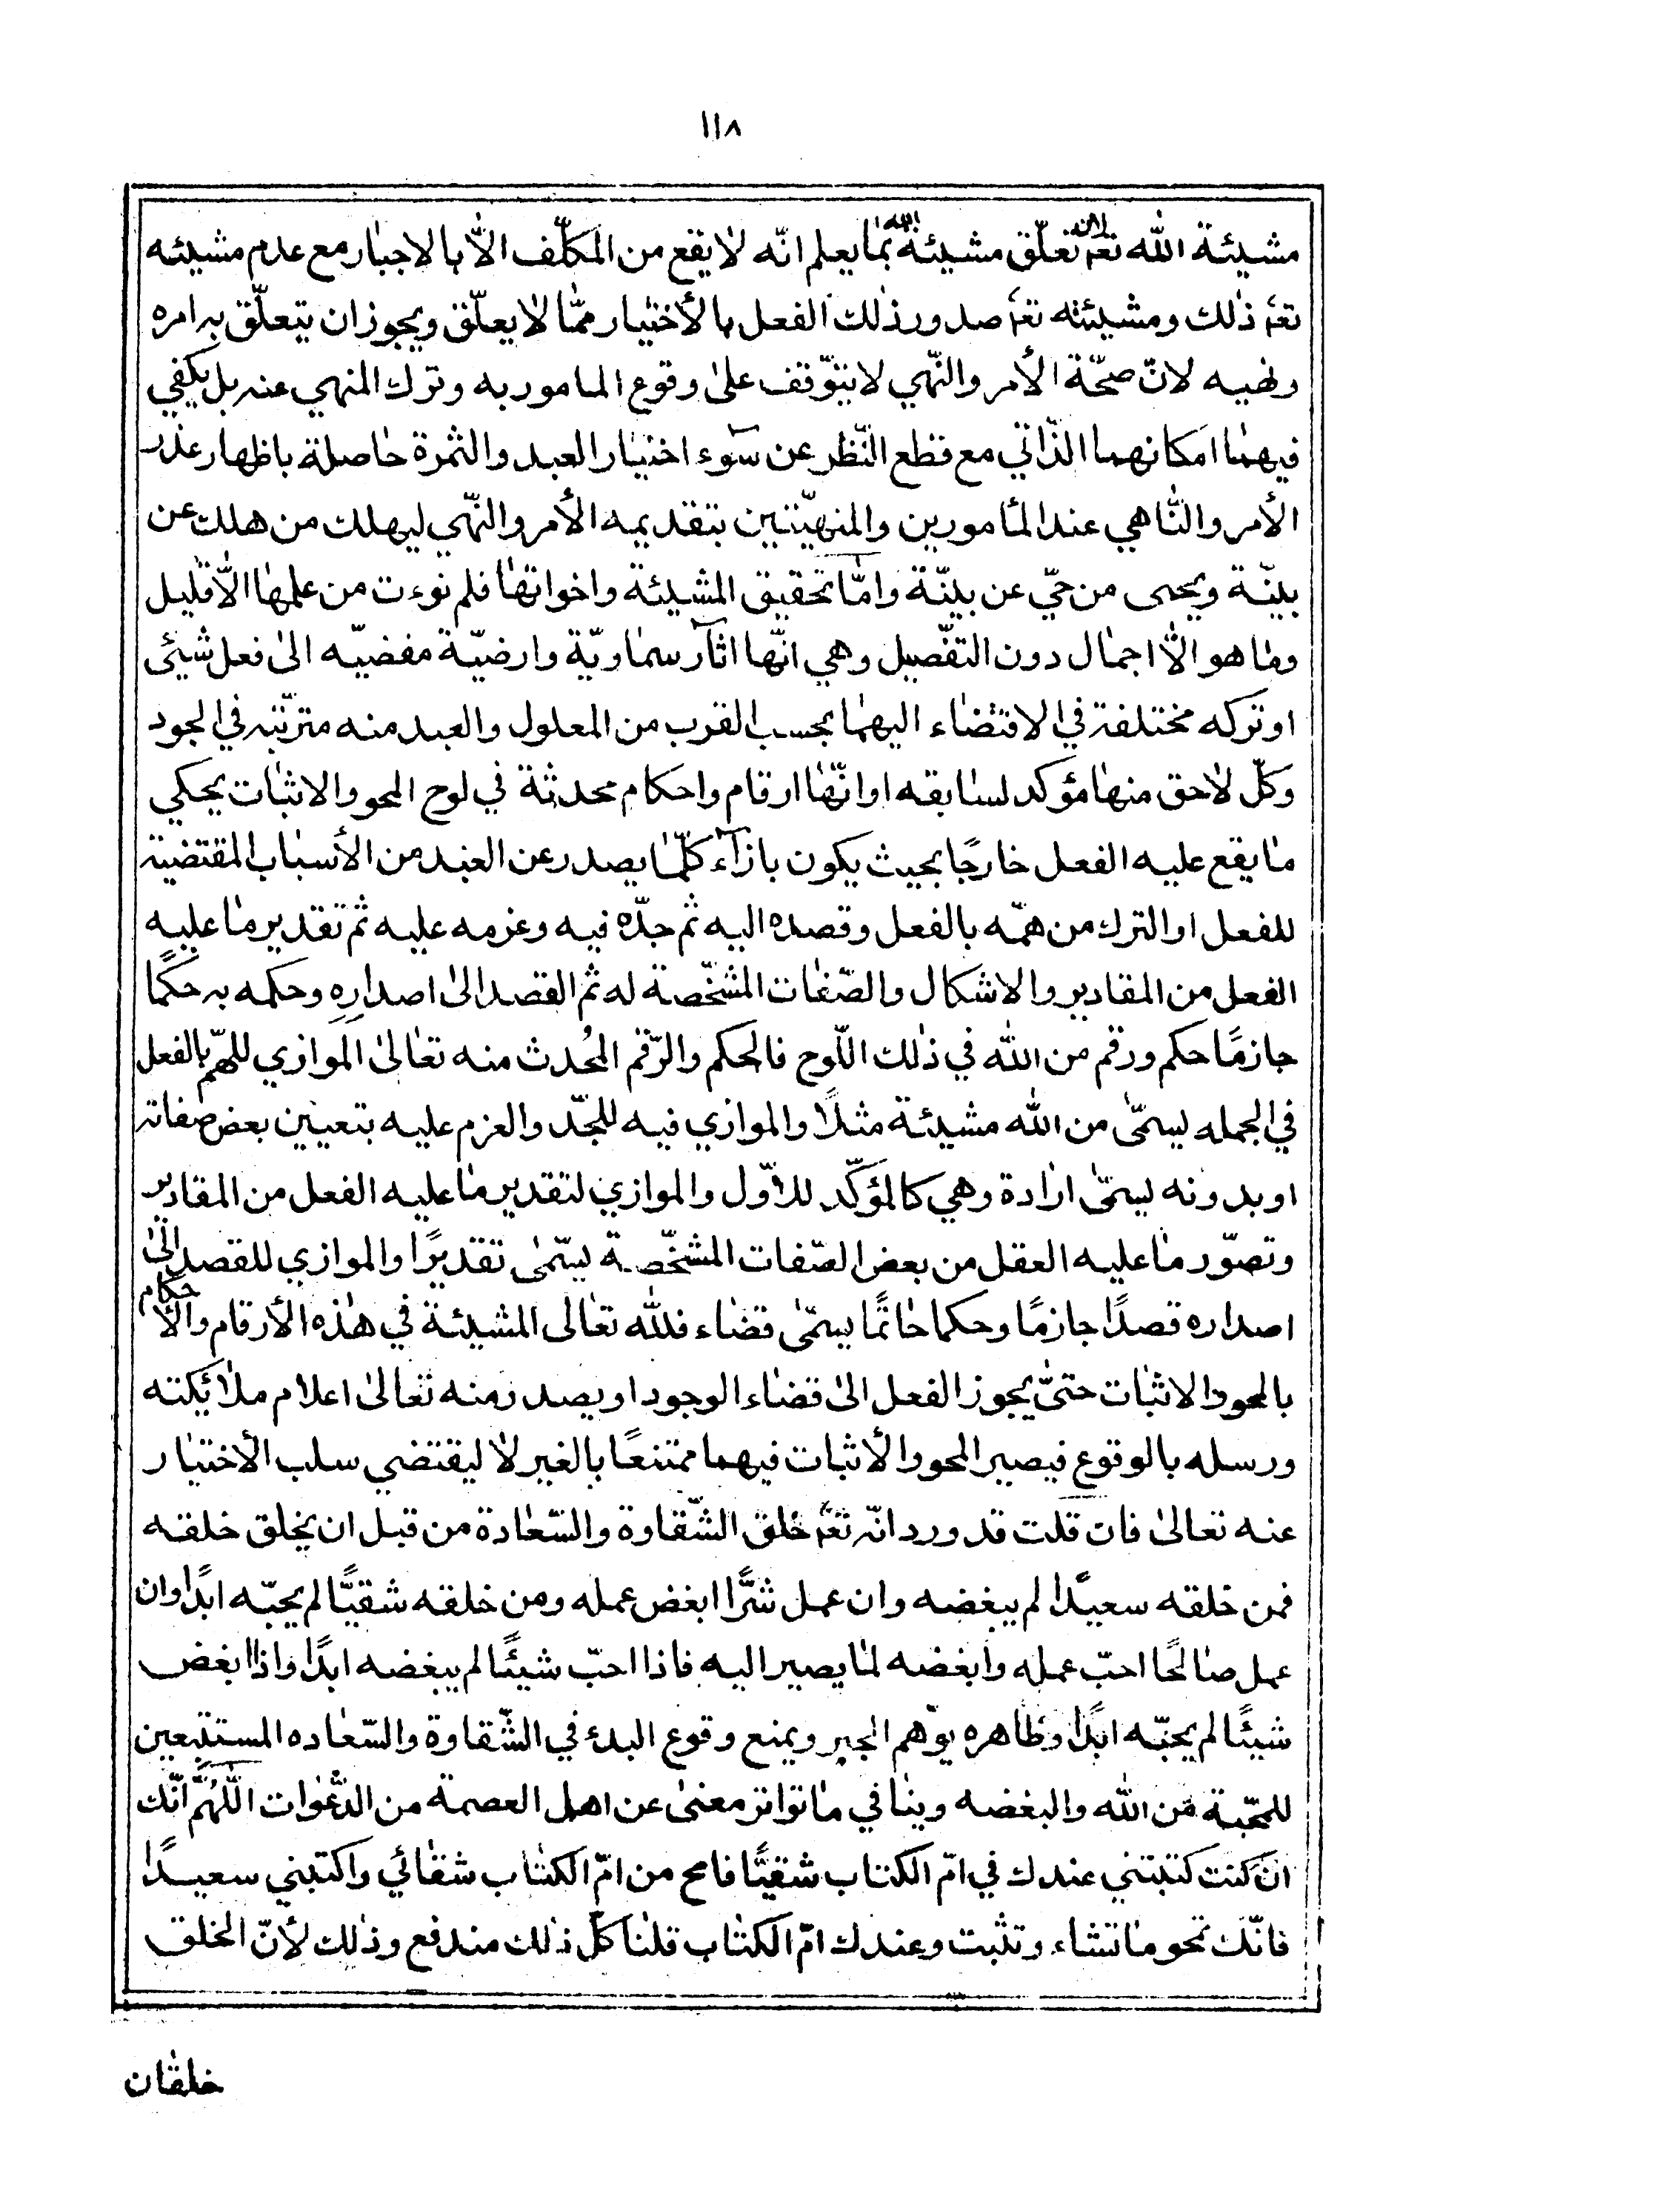 ١١٨
مشيئة الله تعم لان تعلّق مشيئة الله بما يعلم انّه لا يقع من المكلّف الّا بالاجبار مع عدم مشيئه
تعم ذلك ومشيئته تعم صدور ذلك الفعل بالأختيار ممّا لا يعلّق ويجوز ان يتعلّق به امره
ونهيه لانّ صحّة الأمر والنّهي لا يتوّقف على وقوع المامور به وترك المنهي عنه بل يكفي
فيهما امكانهما الذّاتي مع قطع النّظر عن سوء اختيار العبد والثمرة حاصلة باظهار عذر
الأمر والنّاهي عند المأمورين والمنهيّتين بتقديمه الأمر والنّهي ليهلك من هلك عن
بيّنة ويحيى من حيّ عن بيّنة وامّا تحقيق المشيئة واخواتها فلم نوءت من علمها الّا قليل
وما هو الّا اجمال دون التفّصيل وهي انّها اثار سماويّة وارضيّة مفضيّه الى فعل شيئ
او تركه مختلفة في الاقتضاء اليهما بحسب القرب من المعلول والعبد منه مترتّبه في الجود
وكلّ لاحق منها مؤكد لسابقه او انّها ارقام واحكام محدثة في لوح المحو والاثبات يحكي
ما يقع عليه الفعل خارجًا بحيث يكون بازآء كلّما يصدر عن العبد من الأسباب المقتضية
للفعل او الترك من همّه بالفعل وقصده اليه ثم جدّه فيه وعزمه عليه ثم تقدير ما عليه
الفعل من المقادير والاشكال والصّفات المشخّصة له ثم القصد الى اصداره وحكمه به حكمًا
جازمًا حكم ورقم من الله في ذلك اللّوح فالحكم والرّقم المُحدث منه تعالى الموازي للهمّ بالفعل
في الجمله ليسمّى من الله مشيئة مثلًا والموازي فيه للجّد والعزم عليه بتعيين بعض صفاته
او بدونه ليسمّى ارادة وهي كالمؤكّد للأوّل والموازي لتقدير ما عليه الفعل من المقادير
وتصوّر ما عليه العقل من بعض الصّفات المشخّصة يسمّى تقديرًا والموازي للقصد الى
اصداره قصدًا جازمًا وحكما حاتمًا يسمّى قضاء فلله تعالى المشيئة في هذه الأرقام والأحكام
بالمحو والاثبات حتىّ يجوز الفعل الى قضاء الوجود او يصدر منه تعالى اعلام ملائكته
ورسله بالوقوع فيصير المحو والأثبات فيهما ممتنعًا بالغير لا ليقتضي سلب الأختيار
عنه تعالى فان قلت قد ورد انّه تعم خلق الشّقاوة والسّعادة من قبل ان يخلق خلقه
فمن خلقه سعيدًا لم يبغضه وان عمل شرًّا ابغض عمله ومن خلقه شقيًّا لم يحبّه ابدًا وان
عمل صالحًا احبّ عمله وابغضه لما يصير اليه فاذا احبّ شيئًا لم يبغضه ابدًا واذا ابغض
شيئًا لم يحبّه ابدًا وظاهره يوّهم الجبر ويمنع وقوع البدء في الشّقاوة والسّعاده المستتبعين
للمحّبة من الله والبغضه وينافي ما تواتر معنى عن اهل العصمة من الدّعوات اللّهُمَّ انّك
ان كنت كتبتني عندك في امّ الكتاب شقيًّا فامح من امّ الكتاب شقائي واكتبني سعيدًا
فانّك تمحو ما تشاء وتثبت وعندك امّ الكتاب قلنا كلّ ذلك مندفع وذلك لأنّ الخلق
خلقان